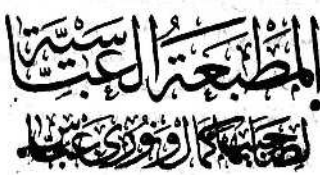 المَطْبَعَةُ العَبَّاسِيَّة
لصَاحبَيهَا كمَال وَنوُري عَبّاس